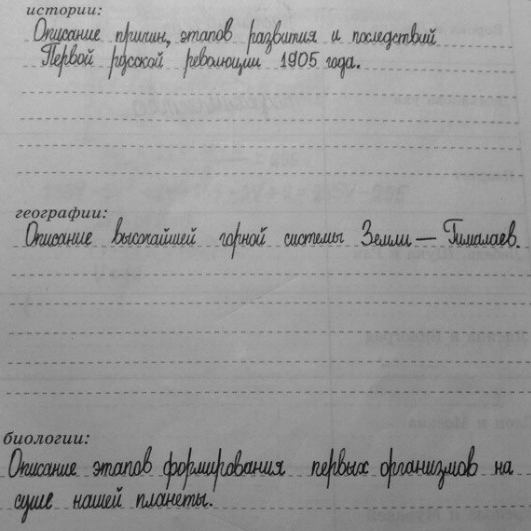 истории:
Описание причин, этапов развития и последствий
Первой русской революции 1905 года.
географии:
Описание высочайшей горной системы Земли — Гималаев.
биологии:
Описание этапов формирования первых организмов на
суше нашей планеты.